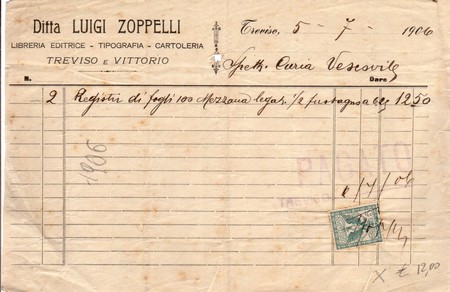 Ditta LUIGI ZOPPELLI
LIBRERIA EDITRICE - TIPOGRAFIA - CARTOLERIA
TREVISO E VITTORIO
Treviso, 5 - 7 - 1906
Spett. Curia Vescovile
N. Dare
2 Registri di fogli 100 Mezzana legat. 1/2 fustagno a 6.25 12 50
1906
PAGATO
6/7/06
X £ 12,00